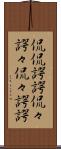 侃侃諤諤侃々
諤々侃々諤諤